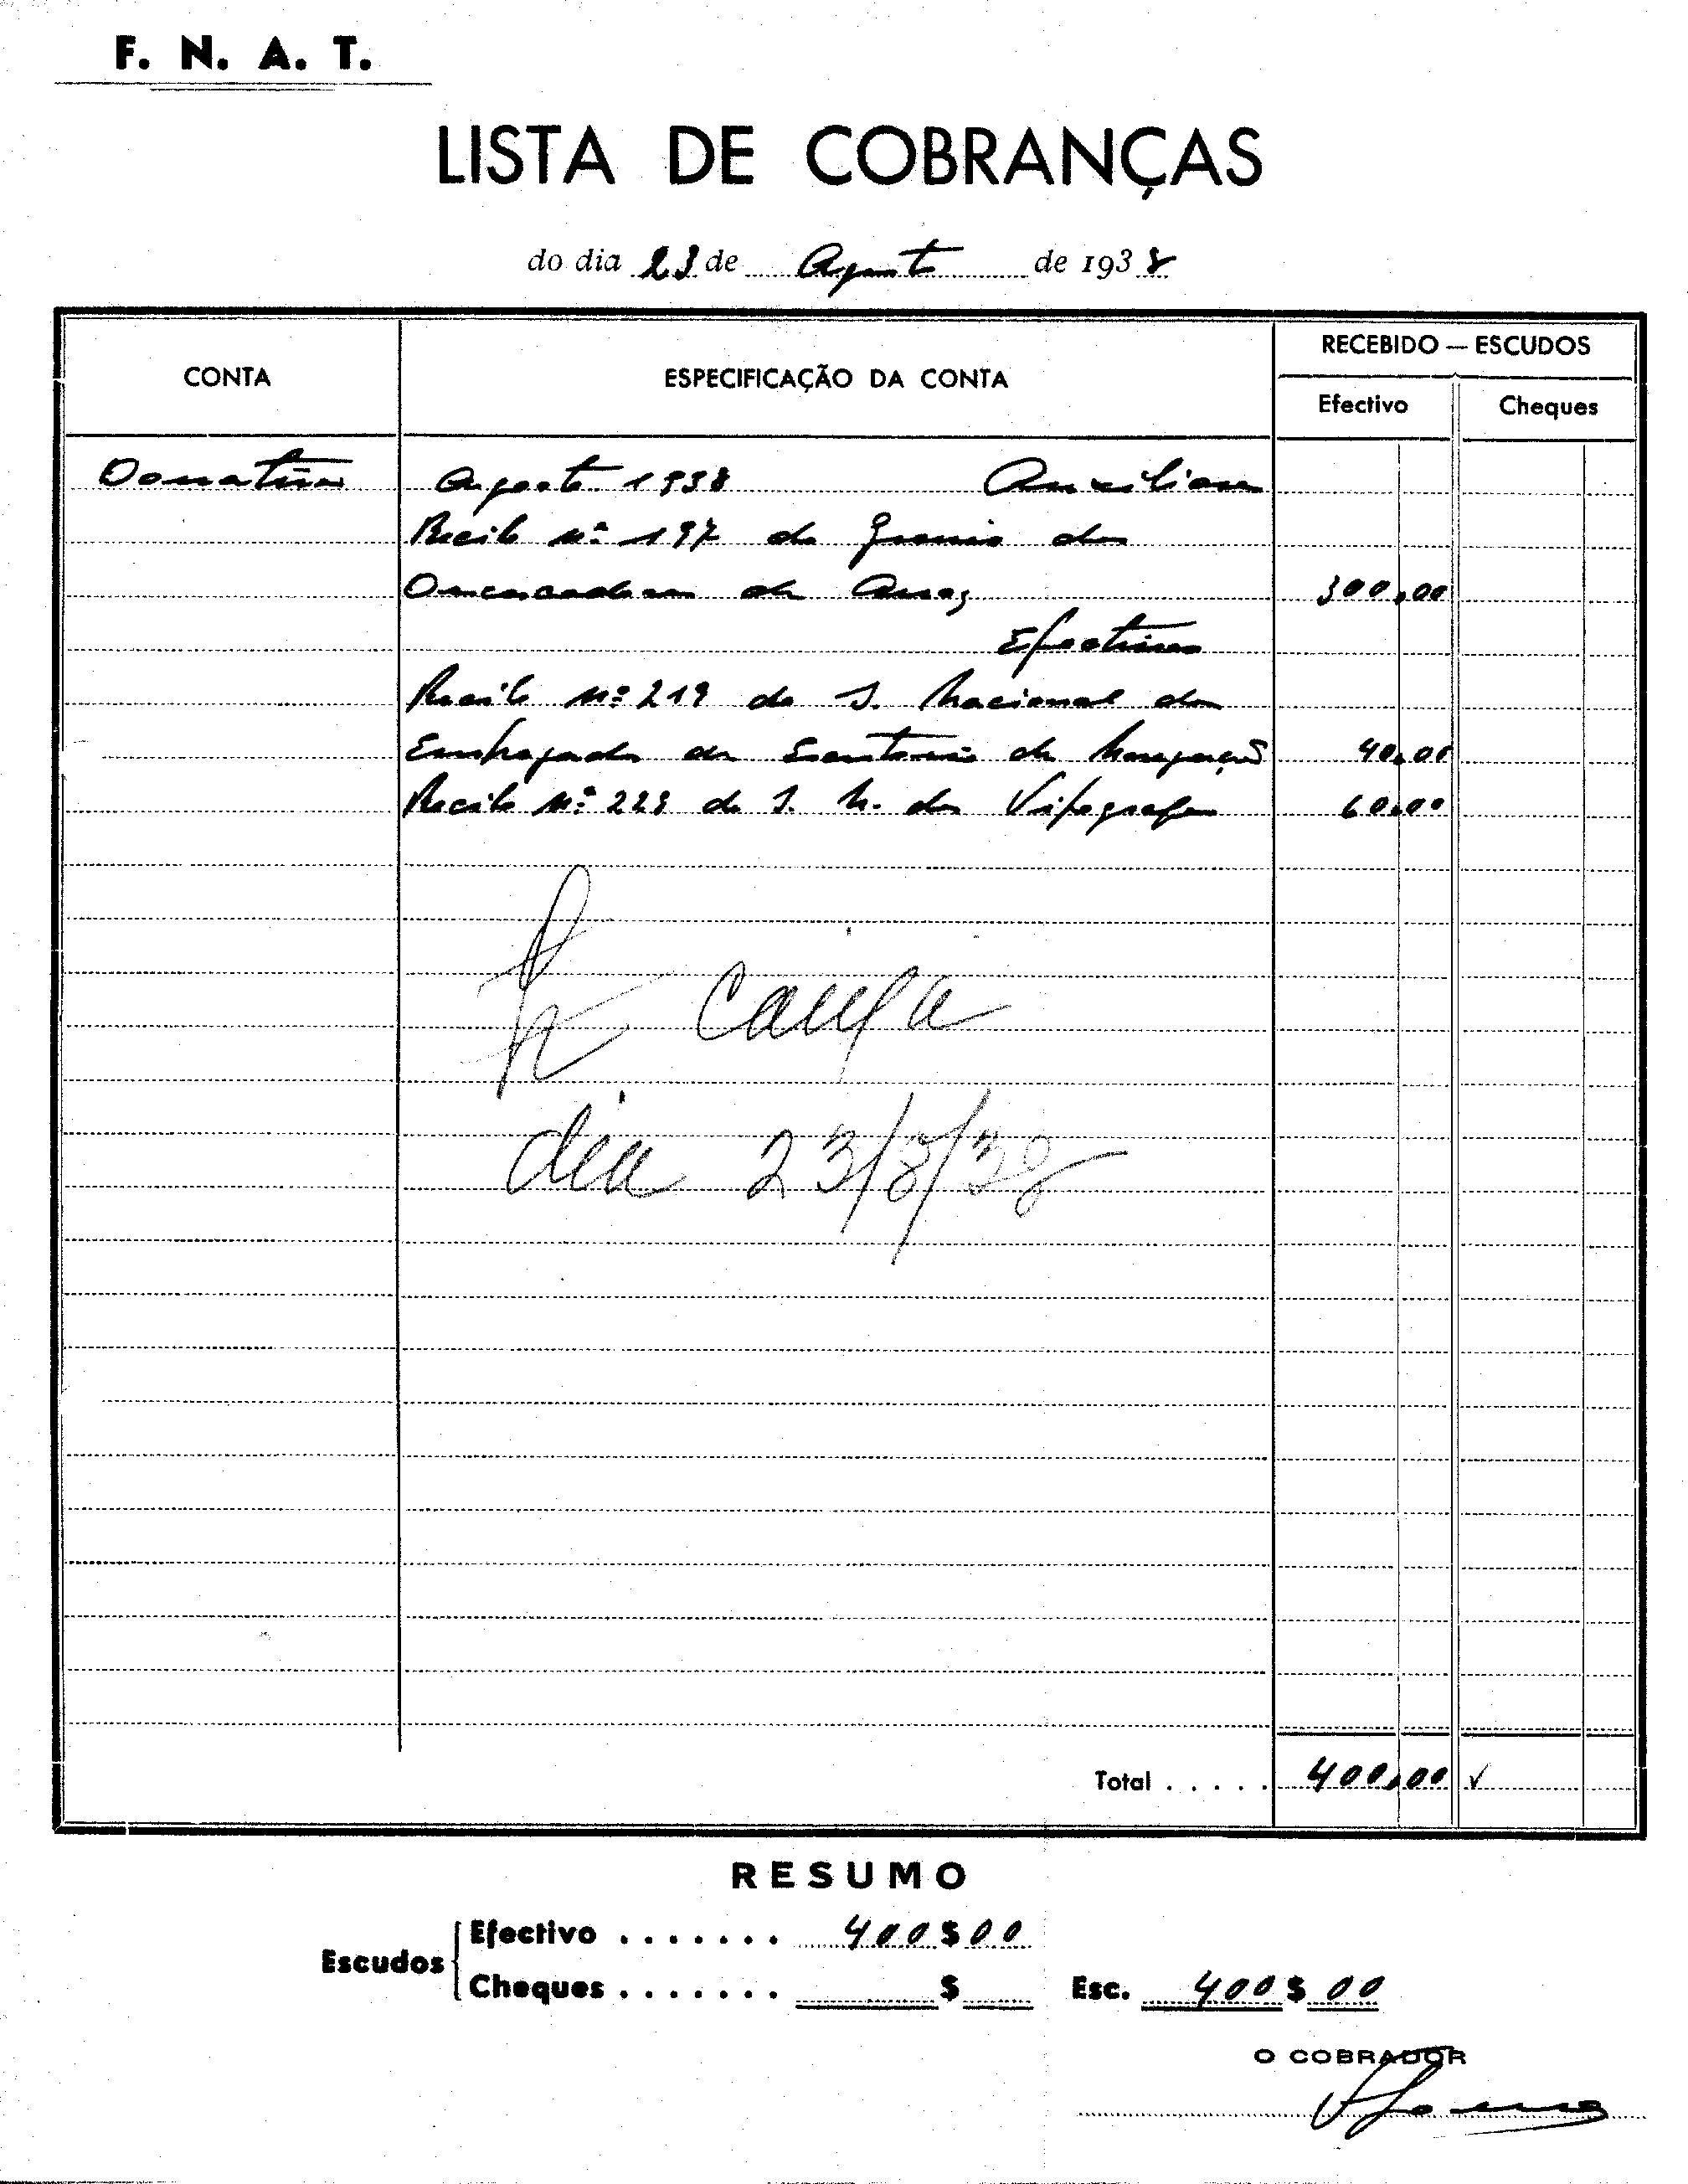 F. N. A. T.
LISTA DE COBRANÇAS
do dia 23 de Agosto de 1938
CONTA
ESPECIFICAÇÃO DA CONTA
RECEBIDO — ESCUDOS
Efectivo
Cheques
Donativos Agosto 1938 Auxiliares
Recibo nº 197 do Gremio dos
de Arroz 300,00
Efectivos
Recibo nº 219 do S. Nacional dos
Empregados de de Navegação 40,00
Recibo nº 229 do S. N. dos 60,00
Caixa
dia 23/8/38
Total . . . . . 400,00 ✓
RESUMO
Escudos
Efectivo . . . . . . . 400$00
Cheques . . . . . . . $
Esc. 400$00
O COBRADOR